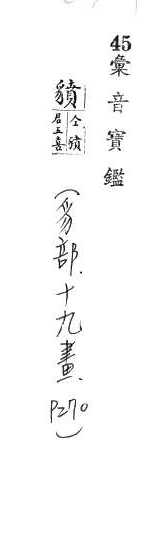 45彙音寶鑑
仝
君五喜
(豸部.十九畫.P270)